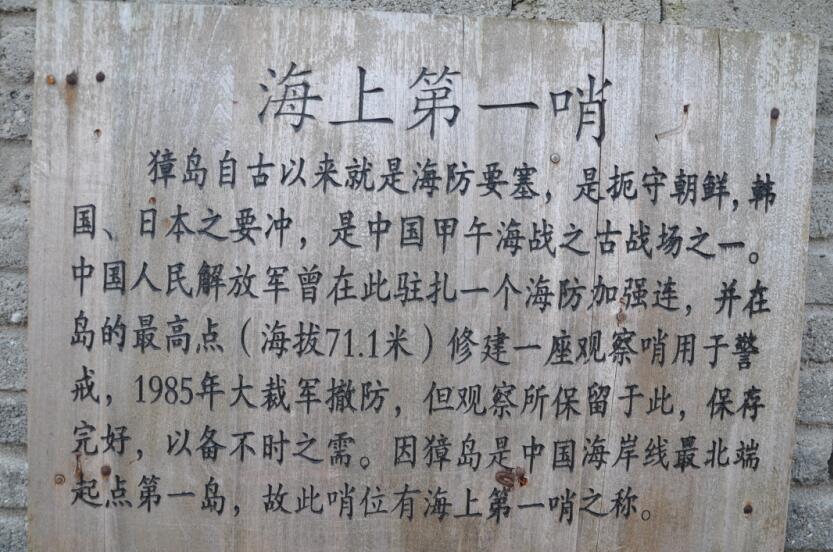 海上第一哨
獐岛自古以来就是海防要塞，是扼守朝鲜，韩
国、日本之要冲，是中国甲午海战之古战场之一。
中国人民解放军曾在此驻扎一个海防加强连，并在
岛的最高点（海拔71.1米）修建一座观察哨用于警
戒，1985年大裁军撤防，但观察所保留于此，保存
完好，以备不时之需。因獐岛是中国海岸线最北端
起点第一岛，故此哨位有海上第一哨之称。